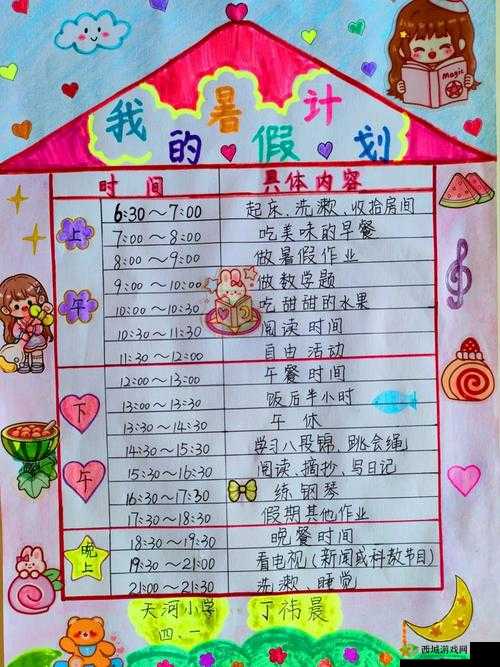 Magic
我的暑假计划
时间 具体内容
上午
6:30～7:00 起床、洗漱、收拾房间
7:00～8:00 吃美味的早餐
8:00～9:00 做暑假作业
9:00～10:00 做数学题
10:00～10:30 吃甜甜的水果
10:30～11:30 阅读时间
11:30～12:00 自由活动
下午
12:00～13:00 午餐时间
13:00～13:30 饭后半小时
13:30～14:30 午休
14:30～15:30 学习八段锦、跳会绳
15:30～16:30 阅读、摘抄、写日记
16:30～17:30 练钢琴
17:30～18:30 假期其他作业
晚上
18:30～19:30 晚餐时间
19:30～21:00 看电视(新闻或科教节目)
21:00～21:30 洗漱 睡觉
天河小学 丁祎晨
四.一
西城游戏网